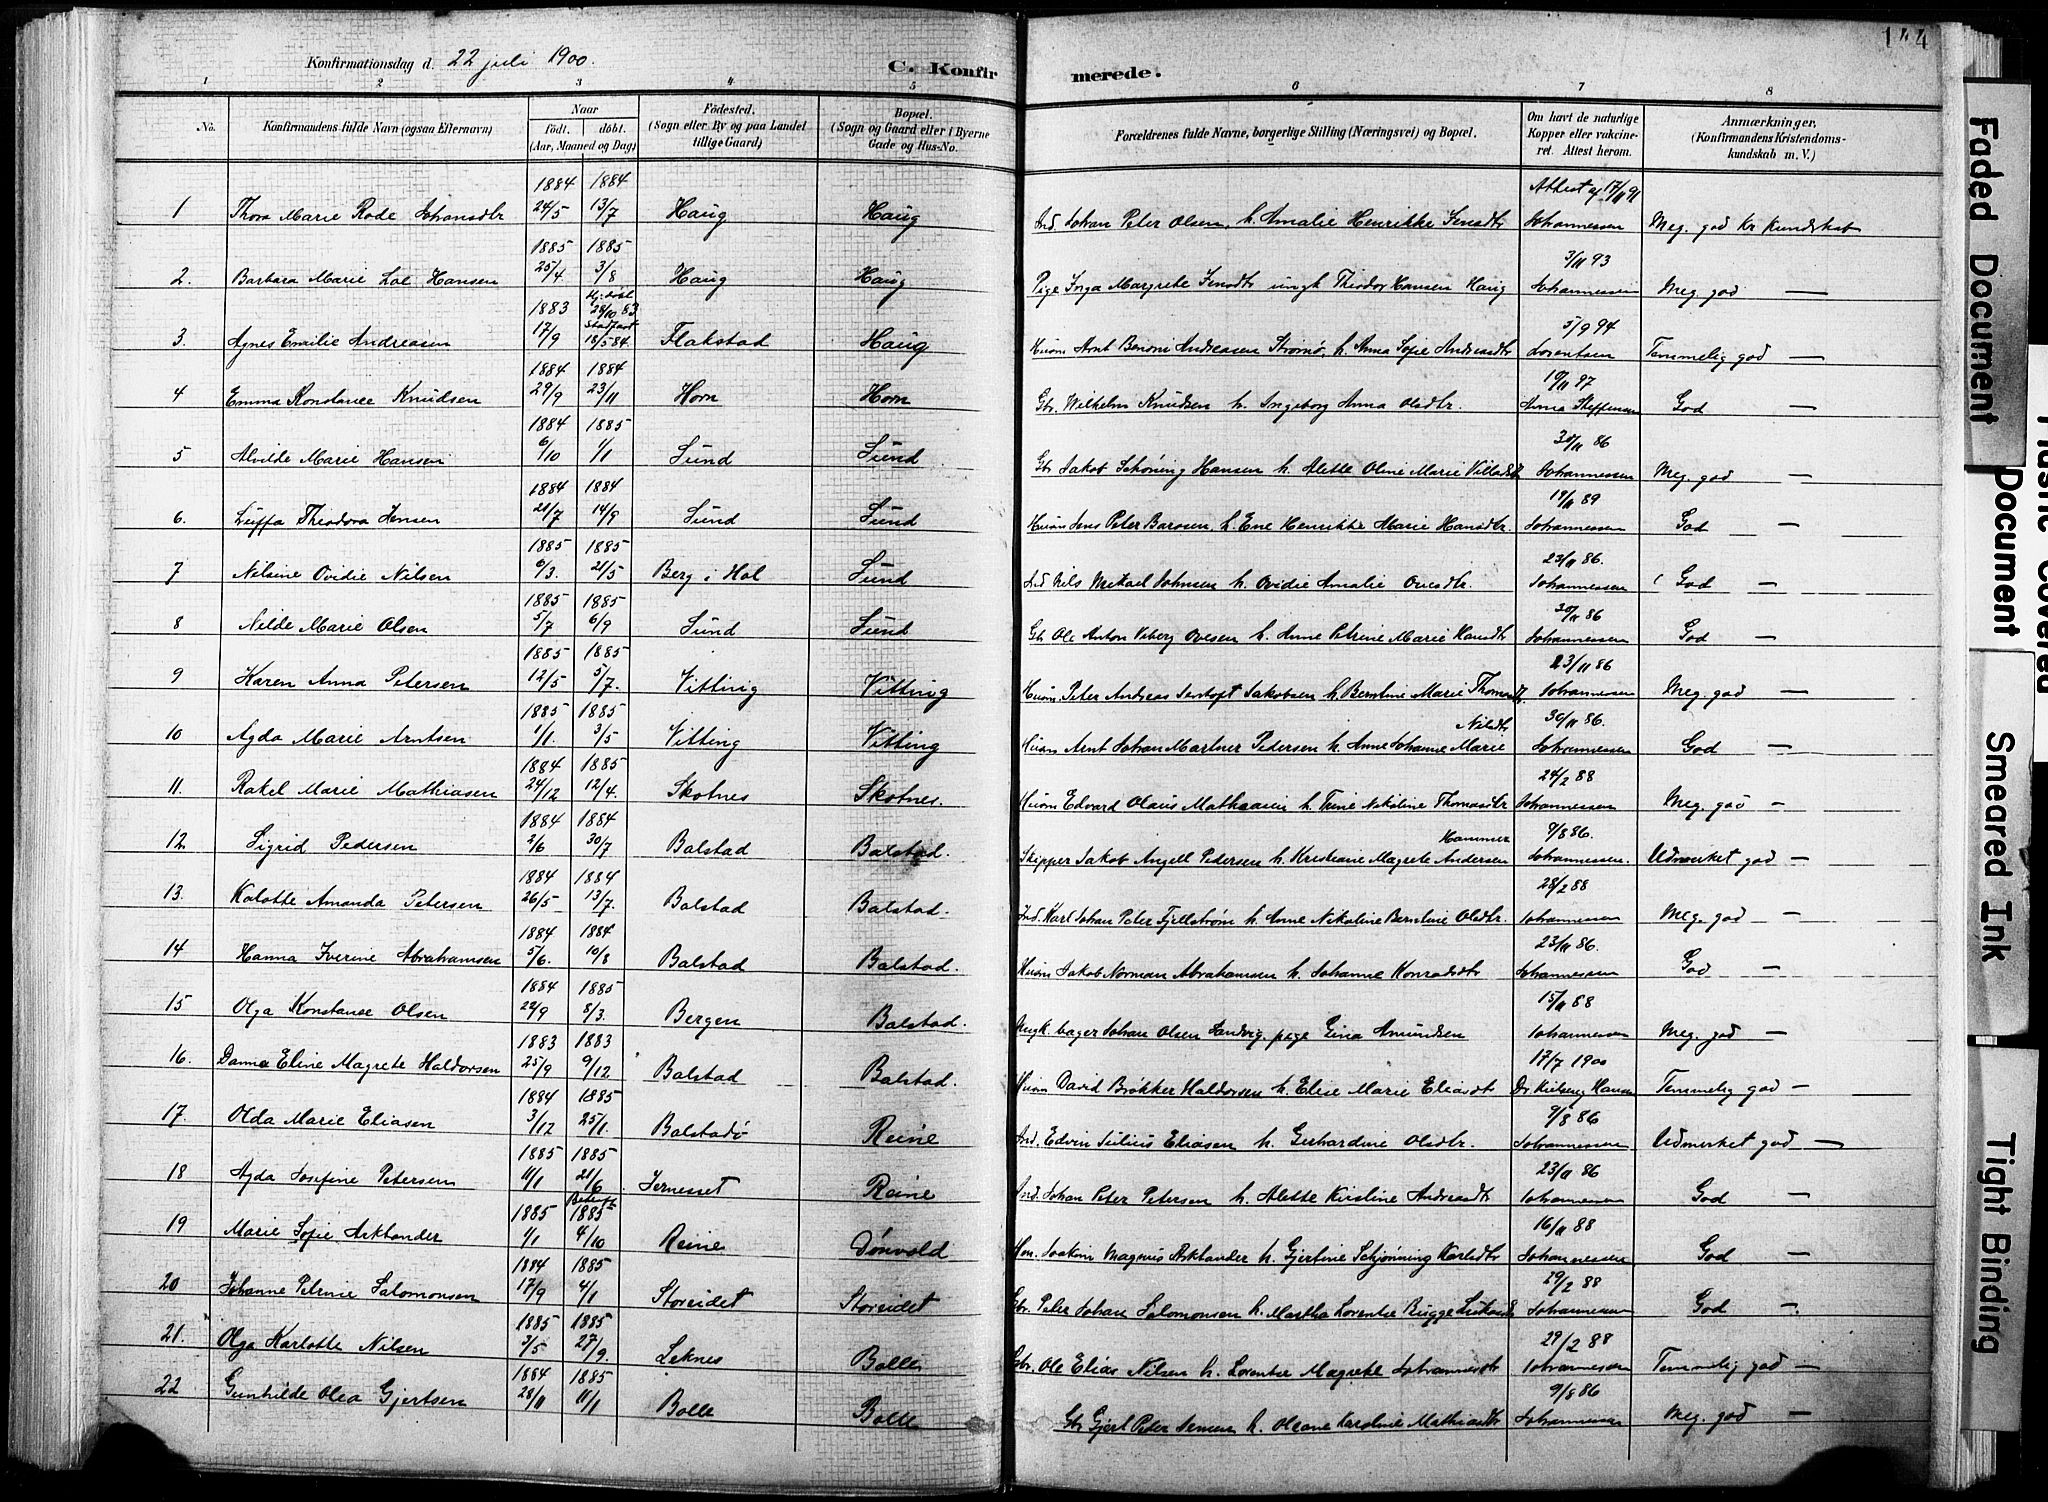 144
Konfirmationsdag d. 22 juli 1900.
C. Konfirmerede.
1 2 3 4 5 6 7 8
No.
Konfirmandens fulde Navn (ogsaa Efternavn)
Naar
födt. döbt.
(Aar, Maaned og Dag)
Födested.
(Sogn eller By og paa Landet
tillige Gaard)
Bopæl.
(Sogn og Gaard eller i Byerne
Gade og Hus-No.
Forældrenes fulde Navne, borgerlige Stilling (Næringsvei) og Bopæl.
Om havt de naturlige
Kopper eller vakcine-
ret. Attest herom.
Anmærkninger,
(Konfirmandens Kristendoms-
kundskab m. V.)
1884 1884 Attest af 17/11 91
1 Thora Marie Rode Johansdtr 24/5 13/7 Haug Haug Ind. Johan Peter Olsen, h. Amalie Henrikke Jensdtr Johannessen Meg. god Kr Kundskab
1885 1885 3/11 93
2. Barbara Marie Hansen 25/4 3/8 Haug Haug Pige Inga Margrete Jensdtr ungk Theodor Hansen Haug Johannessen Meg. god —
1883 Hj. døbt 28/10 83 5/9 94
3. Agnes Emilie Andreasen 17/9 stadfæst 18/5 84. Flakstad Haug Husm Arnt Benoni Andreasen Strømø, h. Anna Sofie Andreasdtr Lorentsen Temmelig god —
1884 1884 19/11 97
4 Emma Konstance Knudsen 29/9 23/11 Horn Horn Gbr. Wilhelm Knudsen h. Ingeborg Anna Olsdtr. Anna Steffensen God —
1884 1885 30/11 86
5 Alvilde Marie Hansen 6/10 1/1 Sund Sund Gbr Jakob Schøning Hansen h. Alette Oline Marie Johannessen Meg. god —
1884 1884 19/11 89
6. Theodora Jensen 21/7 14/9 Sund Sund Husm Jens Peter h. Ene Henrikke Marie Hansdtr. Johannessen God —
1885 1885 23/11 86.
7 Nilsine Ovidie Nilsen 6/3. 21/5 Berg i Hol Sund Ind Nils Mikael Johnsen h. Ovidie Amalie Ovesdtr. Johannessen God —
1885 1885 30/11 86
8 Nilde Marie Olsen 5/7 6/9 Sund Sund Gbr Ole Anton Viberg Ovesen h. Anne Petrine Marie Hansdtr Johannessen God —
1885 1885 23/11 86
9 Karen Anna Petersen 12/5 5/7. Vitting Vitting Husm. Peter Andreas Jakobsen h Berntine Marie Johannessen Meg. god —
1885 1885 Nilsdtr 30/11 86.
10 Agda Marie Arntsen 1/1. 3/5 Vitting Vitting Husm Arnt Johan Martner Pedersen h. Anne Johanne Marie Johannessen God —
1884 1885 24/2 88
11. Rakel Marie Mathiasen 24/12 12/4. Skotnes Skotnes. Husm Edvard Olaus h. Trine Nikoline Thomasdtr Johannessen Meg. god —
1884 1884 Hammer 9/8 86.
12 Sigrid Pedersen 2/6 30/7 Balstad Balstad. Skipper Jakob Angell Pedersen h. Kristiane Magrete Andersen Johannessen. Udmerket god —
1884 1884 28/2 88
13. Kalotte Amanda Petersen 26/5 13/7. Balstad Balstad. Ind. Karl Johan Peter Fjellstrøm h. Anne Nikoline Berntine Olsdtr. Johannessen Meg. god —
1884 1884 23/11 86.
14 Hanna Iverine Abrahamsen 5/6. 10/8 Balstad Balstad. Husm Jakob Norman Abrahamsen h. Johanne Konradsdtr Johannessen God —
1884 1885 15/11 88
15 Olga Konstanse Olsen 22/9 8/3. Bergen Balstad. Ungk. bager Johan Olsen pige Gina Amundsen Johannessen Meg. god —
1883 1883 17/7 1900
16. Danna Eline Magrete Haldorsen 25/9 9/12 Balstad Balstad. Husm David Brøkker Haldorsen h. Elise Marie Eliasdt Dr. Hansen Temmelig god —
1884 1885 9/8 86
17. Olda Marie Eliasen 3/12 25/1. Balstadø Reine Ind. Edvin Julius Eliasen h. Gerhardine Olsdtr. Johannessen Udmerket god —
1885 1885 23/11 86
18 Agda Josefine Petersen 11/1 21/6 Jernesset Reine Ind. Johan Peter Petersen h. Alette Kirstine Andreasdtr Johannessen God —
1885 1885 16/11 88
19 Marie Sofie Arktander 1/1 4/10 Reine Dønvold Hm. Joakim Magnus Arktander h. Gjertine Schjønning Karlsdtr Johannessen God —
1884 1885 29/2 88
20 Johanne Petrine Salomonsen 17/9 4/1 Storeidet Storeidet Gbr. Peter Johan Salomonsen h. Martha Lorentse Bugge Johannessen God —
1885 1885 29/2 88
21. Olga Karlotte Nilsen 3/5 27/9. Leknes Bolle Gbr. Ole Elias Nilsen h. Lorentse Magrete Johannesdtr Johannessen Temmelig god —
1884 1885 9/8 86
22 Gunhilde Olea Gjertsen 28/11 11/1 Bolle Bolle Gbr Gjert Peter Jensen h. Olsane Karoline Mathiasdtr Johannessen Meg. god —
Faded Document
Document
Covered
Smeared Ink
Tight Binding